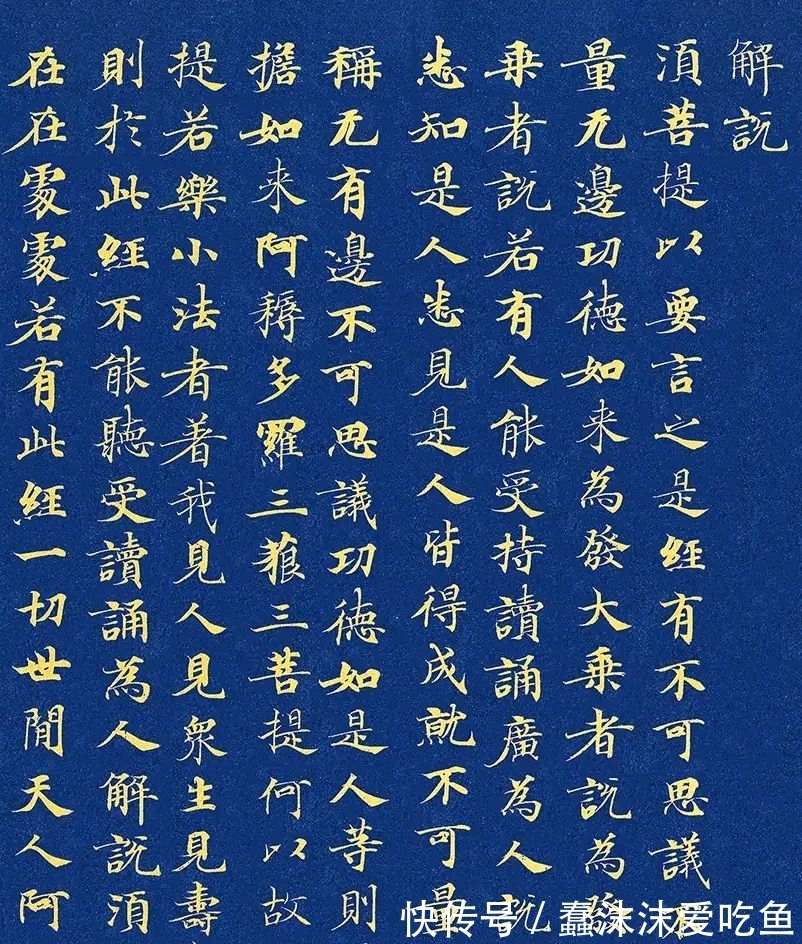 解說
須菩提以要言之是經有不可思議
量无邊功德如来為發大乗者說為
乗者說若有人能受持讀誦廣為人說
悉知是人悉見是人皆得成就不可量
稱无有邊不可思議功德如是人等則
擔如来阿耨多羅三藐三菩提何以故
提若樂小法者著我見人見衆生見壽
則於此經不能聽受讀誦為人解說須
在在處處若有此經一切世間天人阿
快传号/蠢沫沫爱吃鱼